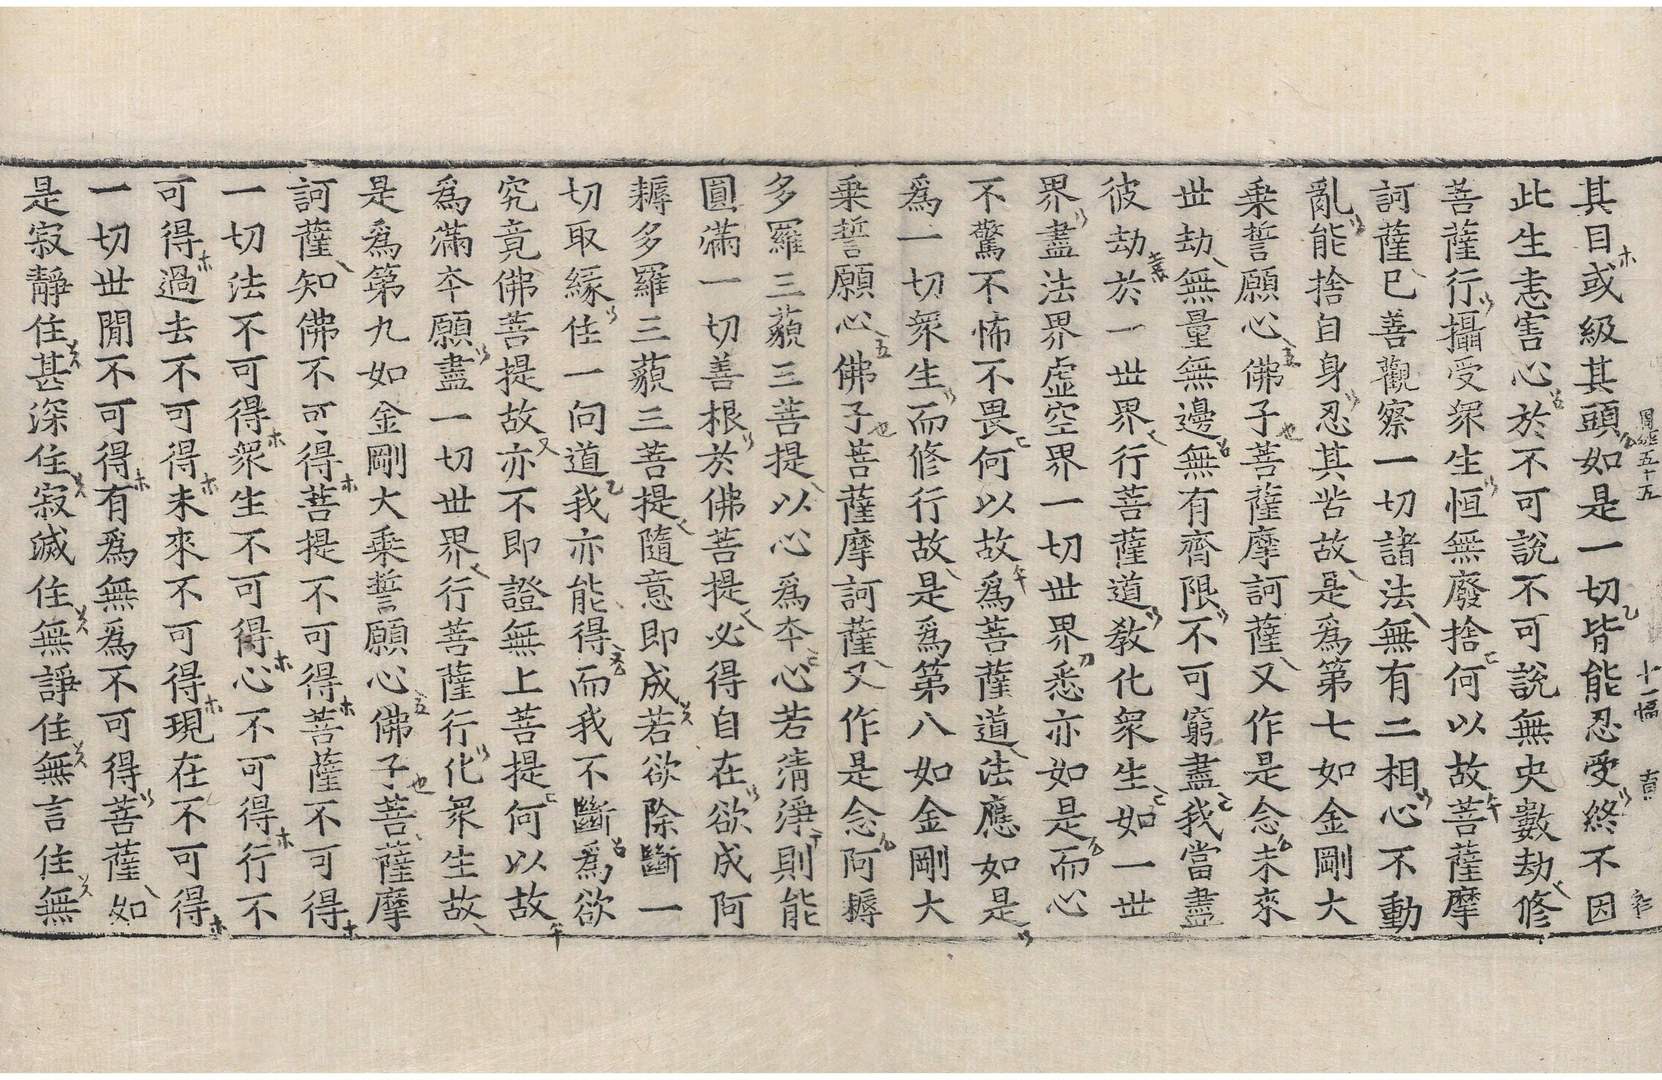 周經五十五 十一幅 貞
其目或級其頭如是一切皆能忍受終不因
此生恚害心於不可說不可說無央數劫修
菩薩行攝受衆生恒無廢捨何以故菩薩摩
訶薩已善觀察一切諸法無有二相心不動
亂能捨自身忍其苦故是爲第七如金剛大
乘誓願心佛子菩薩摩訶薩又作是念未來
世劫無量無邊無有齊限不可窮盡我當盡
彼劫於一世界行菩薩道敎化衆生如一世
界盡法界虛空界一切世界悉亦如是而心
不驚不怖不畏何以故爲菩薩道法應如是
爲一切衆生而修行故是爲第八如金剛大
乘誓願心佛子菩薩摩訶薩又作是念阿耨
多羅三藐三菩提以心爲本心若淸淨則能
圓滿一切善根於佛菩提必得自在欲成阿
耨多羅三藐三菩提隨意即成若欲除斷一
切取緣住一向道我亦能得而我不斷爲欲
究竟佛菩提故亦不即證無上菩提何以故
爲滿本願盡一切世界行菩薩行化衆生故
是爲第九如金剛大乘誓願心佛子菩薩摩
訶薩知佛不可得菩提不可得菩薩不可得
一切法不可得衆生不可得心不可得行不
可得過去不可得未來不可得現在不可得
一切世閒不可得有爲無爲不可得菩薩如
是寂靜住甚深住寂滅住無諍住無言住無